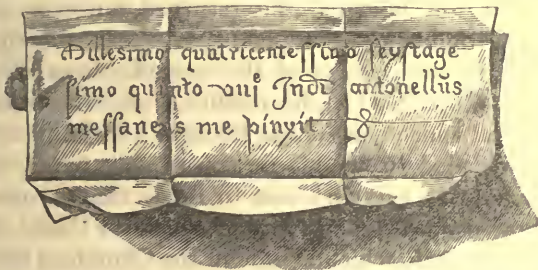 Milleſimo quatricenteſſimo ſexſtage
ſimo quinto Indi antonellus
meſſaneus me pinxit